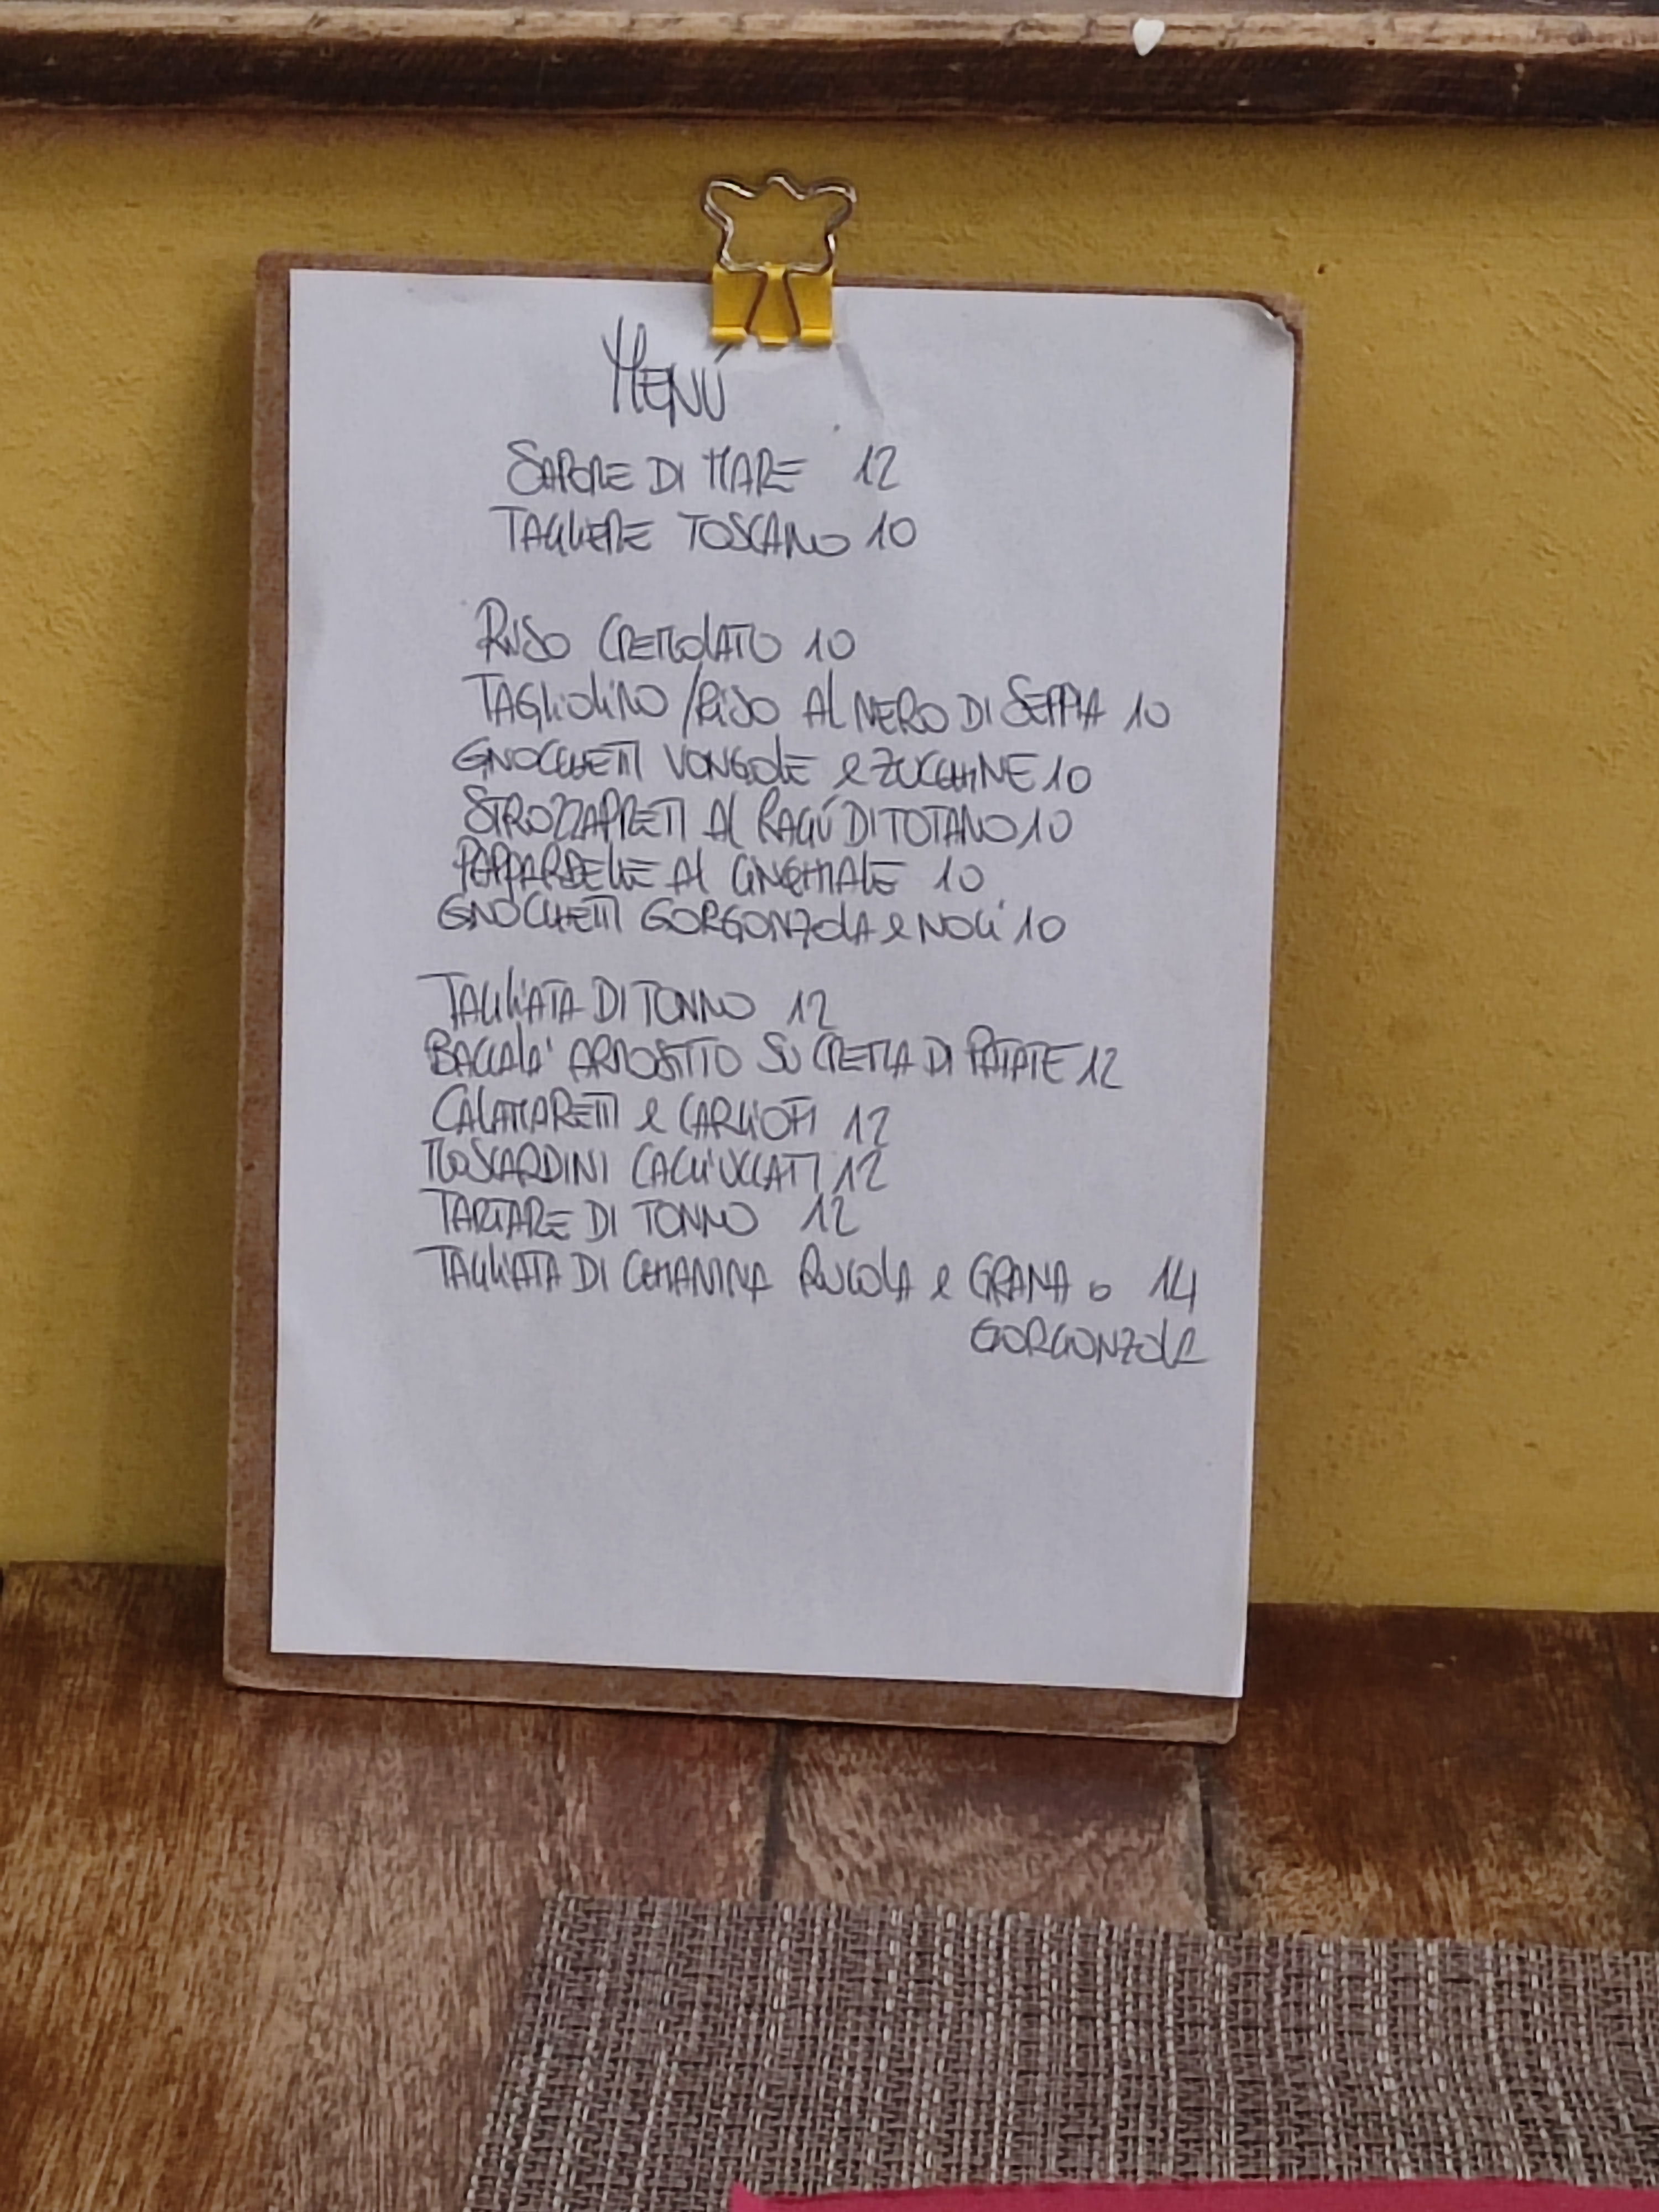 MENÚ
SAPORE DI MARE 12
TAGLIERE TOSCANO 10
RISO CREMOLATO 10
TAGLIOLINO/RISO AL NERO DI SEPPIA 10
GNOCCHETTI VONGOLE e ZUCCHINE 10
STROZZAPRETI AL RAGÚ DI TOTANO 10
PAPPARDELLE AL CINGHIALE 10
GNOCCHETTI GORGONZOLA e NOCI 10
TAGLIATA DI TONNO 12
BACCALA' ARROSTITO SU CREMA DI PATATE 12
CALAMARETTI e CARCIOFI 12
MOSCARDINI CACCIUCCATI 12
TARTARE DI TONNO 12
TAGLIATA DI CHIANINA RUCOLA e GRANA o 14
GORGONZOLA